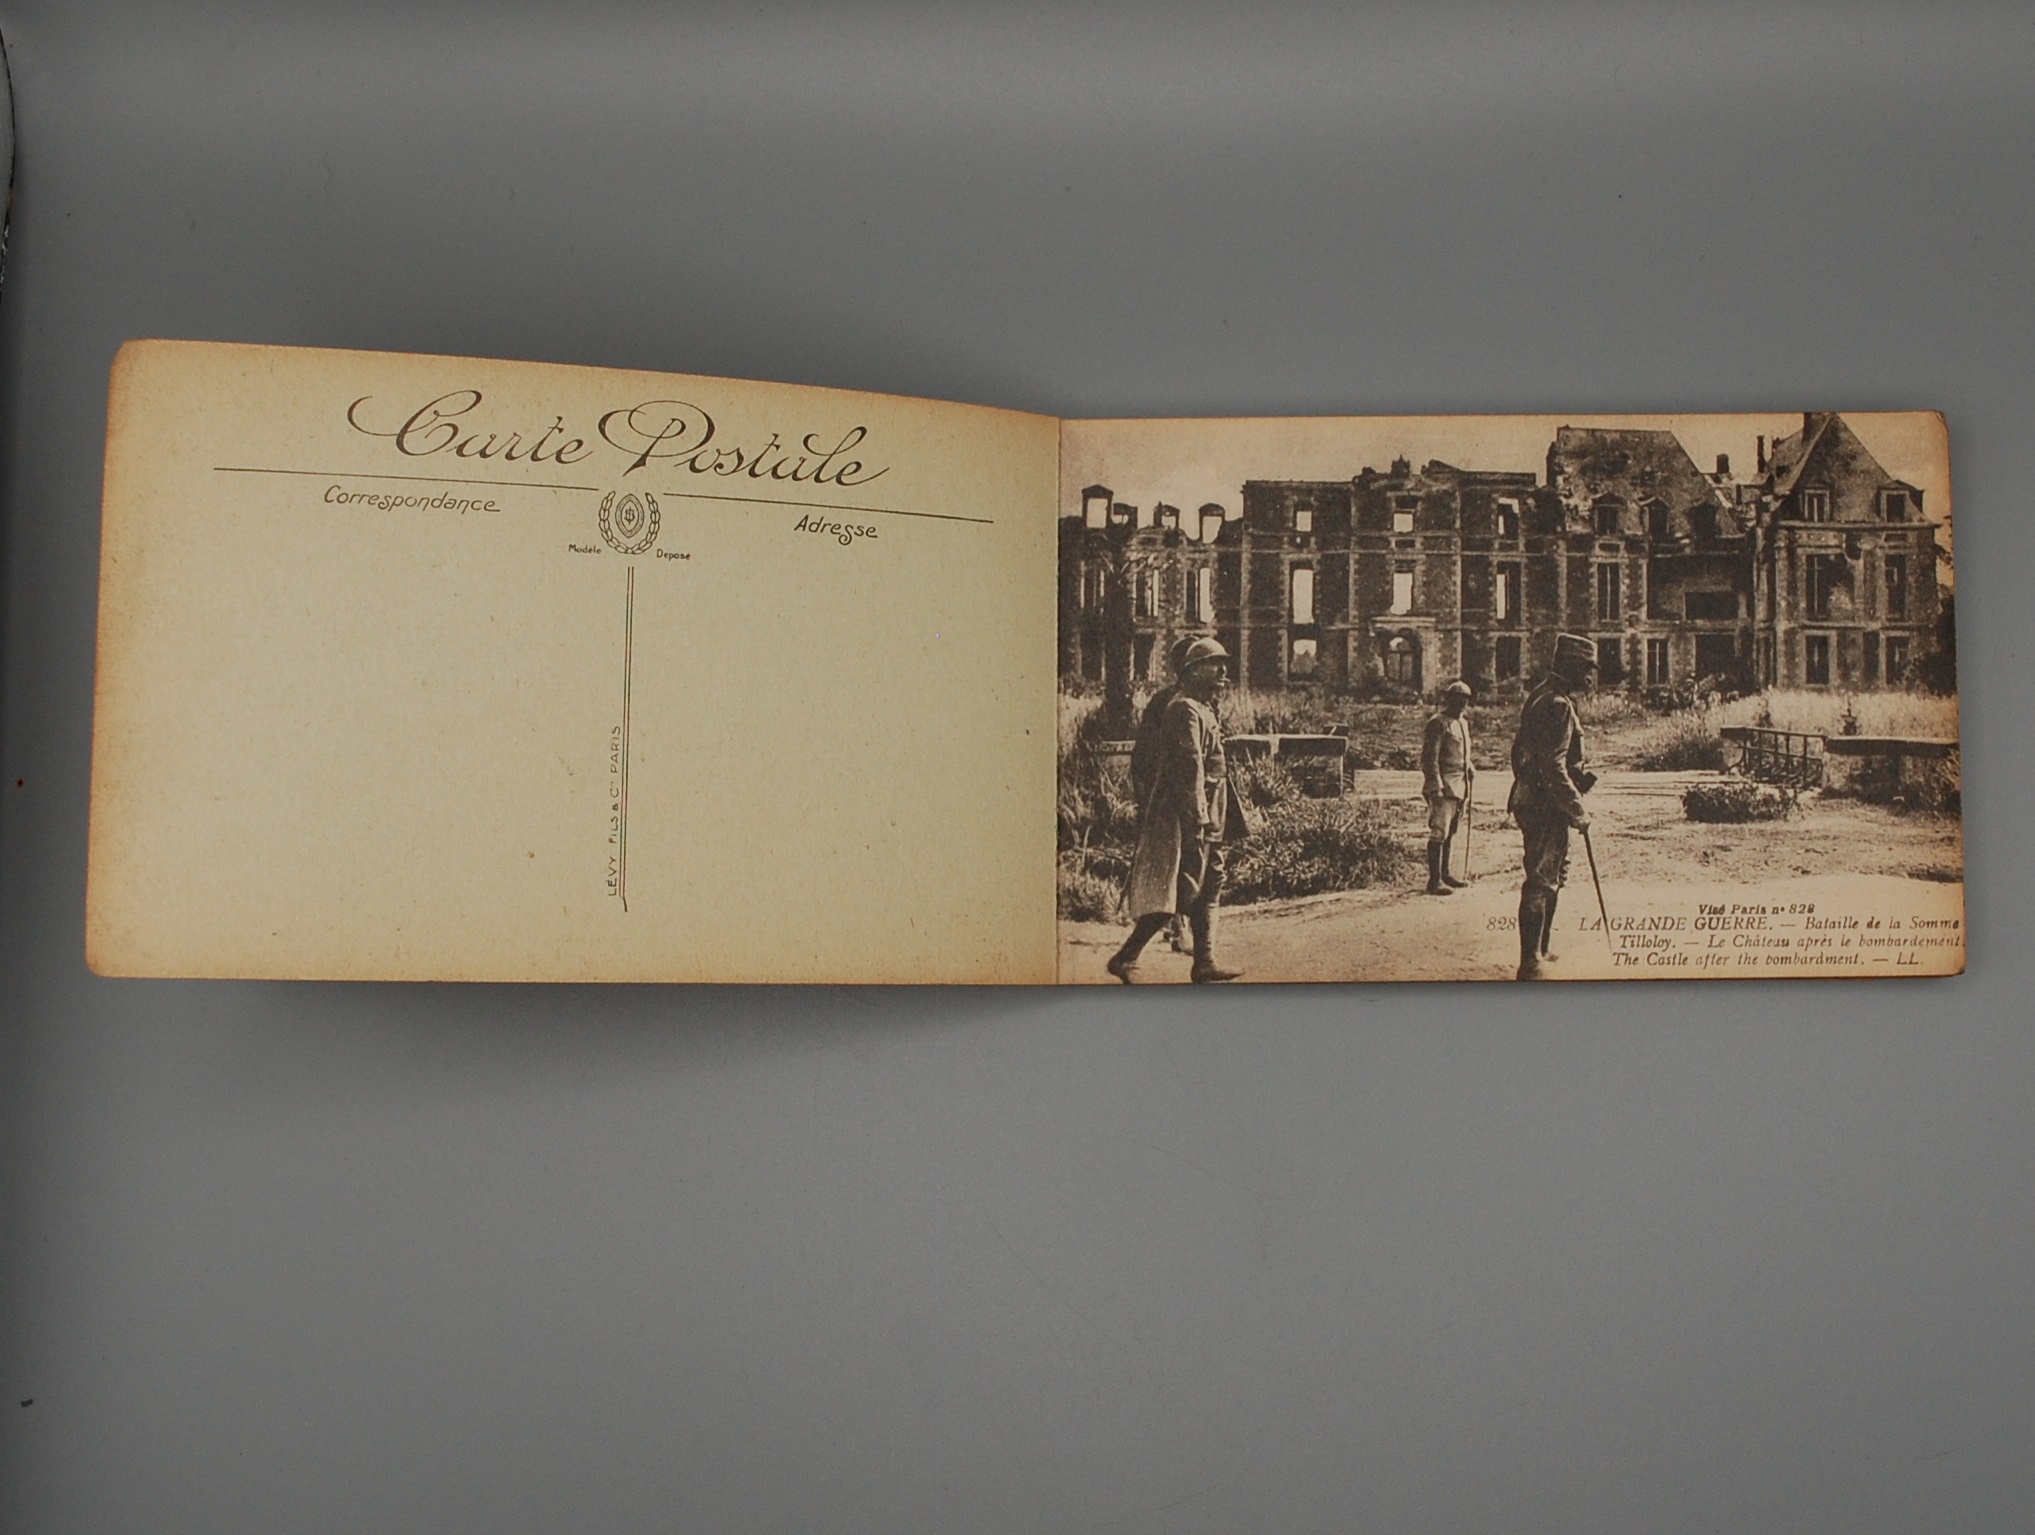 Carte Postale
Correspondance
Adresse
Modèle Déposé
LÉVY FILS & Cie PARIS
Visé Paris nº 828
828 LA GRANDE GUERRE. — Bataille de la Somme
Tilloloy. — Le Château après le bombardement.
The Castle after the bombardment. — LL.